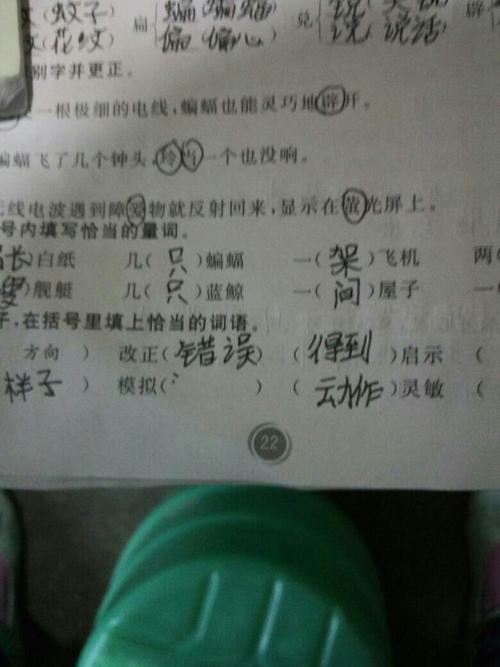 (蚊子) 扁 蝙 兑 说 辟
(花纹) 偏(偏心) 说 说话
别字并更正。
一根极细的电线,蝙蝠也能灵巧地辟开。
蝙蝠飞了几个钟头,玲当一个也没响。
线电波遇到障爱物就反射回来,显示在萤光屏上。
号内填写恰当的量词。
)白纸 几(只)蝙蝠 一(架)飞机 两(
)舰艇 几(只)蓝鲸 一(间)屋子 一
子,在括号里填上恰当的词语。
方向 ) 改正(错误) (得到)启示 (
样子 ) 模拟( ) (动作)灵敏 (
22